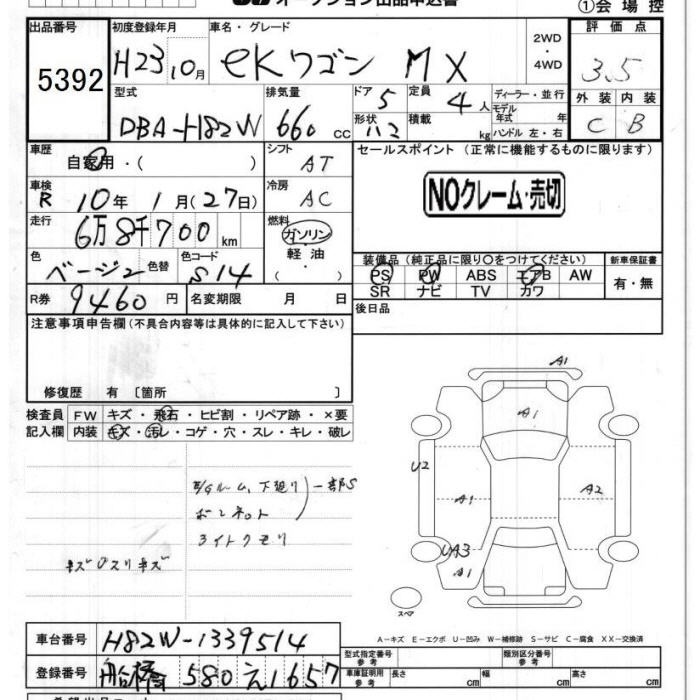 オークション出品申込書
①会場控
出品番号 初度登録年月 車名・グレード 2WD ・ 4WD 評価点
5392 H23 10月 eKワゴン MX 3.5
型式 排気量 ドア 5 定員 4人 ディーラー・並行 外装 内装
DBA-H82W 660 cc 形状 ハコ 積載 kg モデル年式 年 ハンドル 左・右 C B
車歴 自家用・( ) シフト AT セールスポイント (正常に機能するものに限ります)
車検 R 10年 1月(27日) 冷房 AC NOクレーム・売切
走行 6万8千700km 燃料 ガソリン・軽油・
色 ベージュ 色替 色コード S14 装備品 (純正品に限り〇をつけてください) 新車保証書
PS PW ABS エアB AW 有・無
SR ナビ TV カワ
R券 9460円 名変期限 月 日 後日品
注意事項申告欄(不具合内容等は具体的に記入して下さい)
修復歴 有 〔箇所 〕
検査員 FW キズ・飛石・ヒビ割・リペア跡・×要
記入欄 内装 キズ・汚レ・コゲ・穴・スレ・キレ・破レ
A1
A1
U2
A1 A2
UA3
A1
E/Gルーム、下廻り 一部S
ボンネット
ライトクモリ
キズ スリキズ
スペア
A-キズ E-エクボ U-凹み W-補修跡 S-サビ C-腐食 XX-交換済
車台番号 H82W-1339514 型式指定番号 参考 類別区分番号 参考
登録番号 船橋 580 え1657 車庫証明用 参考 長さ cm 幅 cm 高さ cm